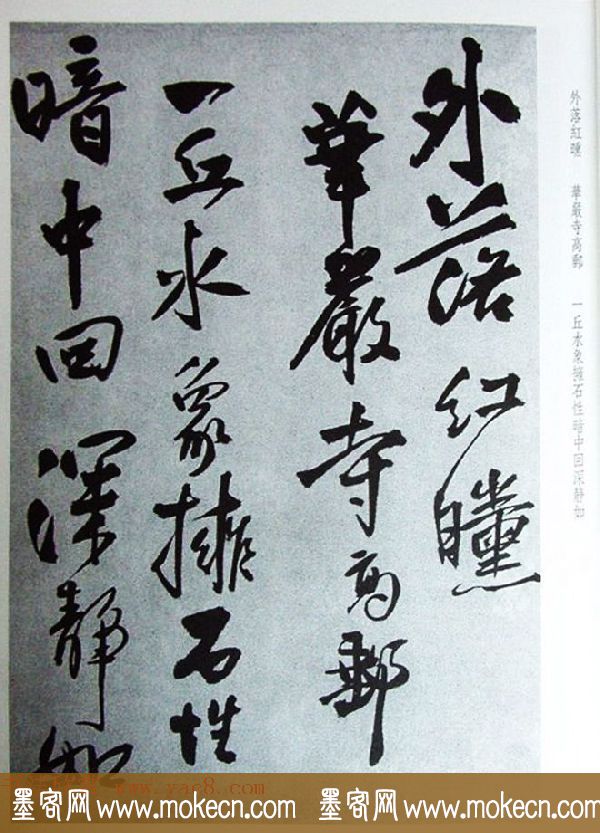 外落红曛
華嚴寺高郵
一丘水象擁石性
暗中回深靜如
外落紅曛　華嚴寺高郵　一丘水象擁石性暗中回深靜如
www.yac8.com
墨客网 www.mokecn.com 墨客网 www.mokecn.com